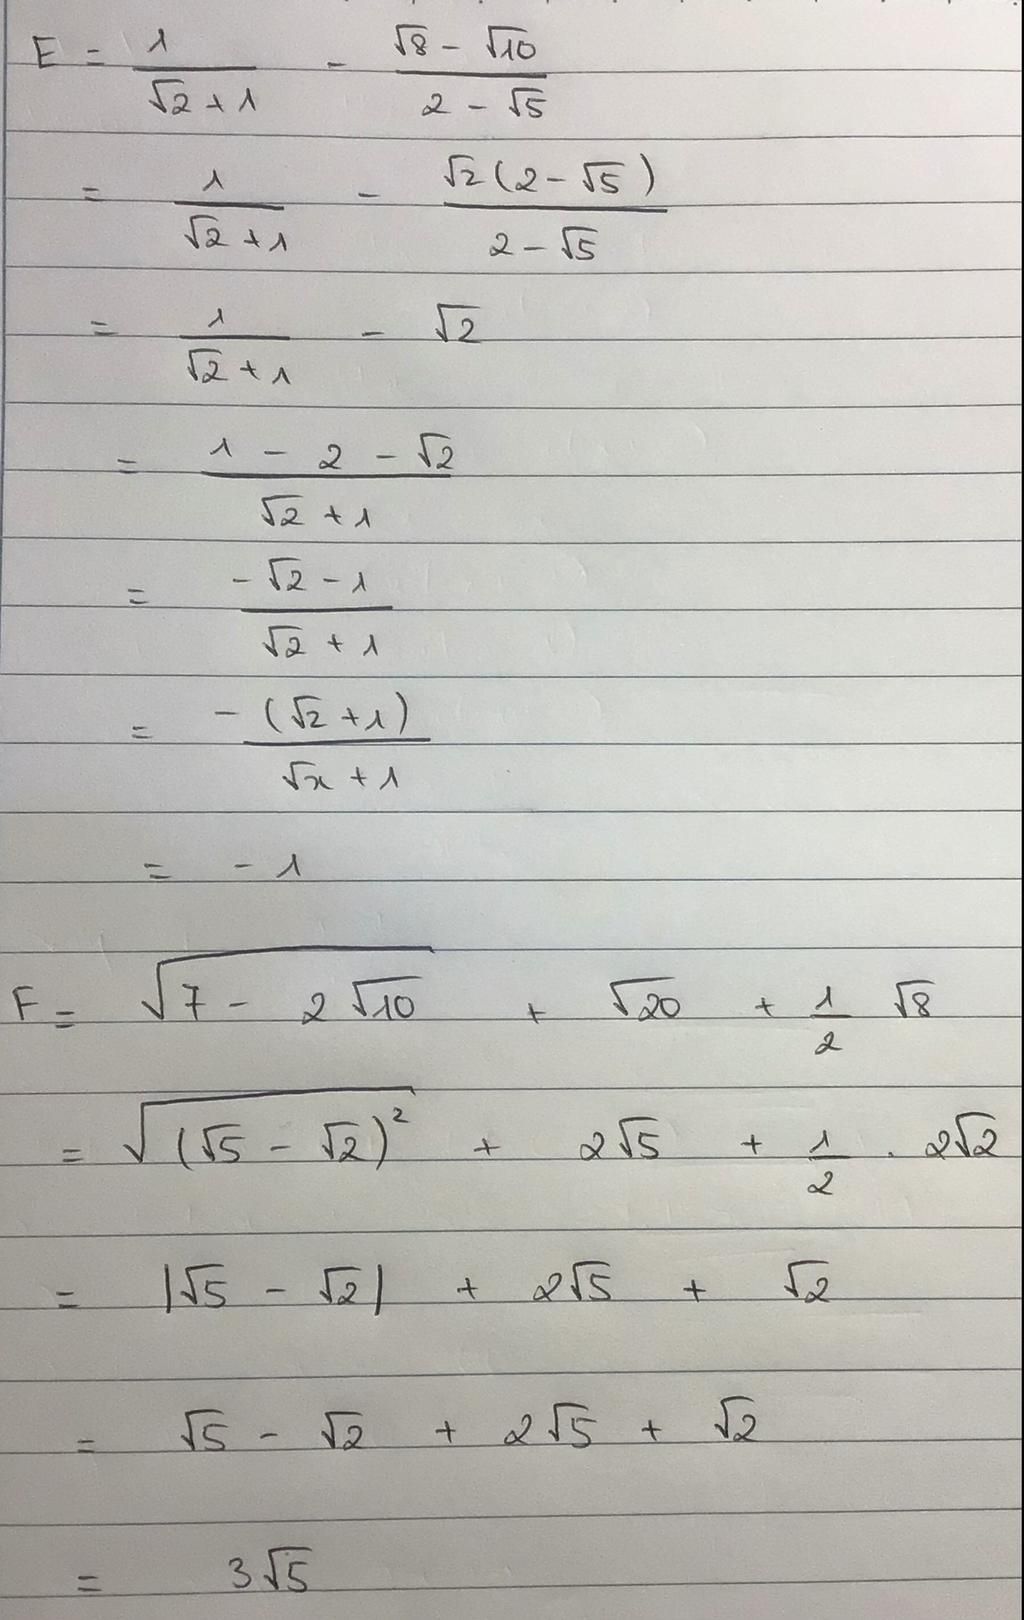 E = \frac{1}{\sqrt{2}+1} - \frac{\sqrt{8}-\sqrt{10}}{2-\sqrt{5}}
= \frac{1}{\sqrt{2}+1} - \frac{\sqrt{2}(2-\sqrt{5})}{2-\sqrt{5}}
= \frac{1}{\sqrt{2}+1} - \sqrt{2}
= \frac{1-2-\sqrt{2}}{\sqrt{2}+1}
= \frac{-\sqrt{2}-1}{\sqrt{2}+1}
= \frac{-(\sqrt{2}+1)}{\sqrt{x}+1}
= -1
F = \sqrt{7-2\sqrt{10}} + \sqrt{20} + \frac{1}{2}\sqrt{8}
= \sqrt{(\sqrt{5}-\sqrt{2})^2} + 2\sqrt{5} + \frac{1}{2}.2\sqrt{2}
= |\sqrt{5}-\sqrt{2}| + 2\sqrt{5} + \sqrt{2}
= \sqrt{5}-\sqrt{2} + 2\sqrt{5} + \sqrt{2}
= 3\sqrt{5}